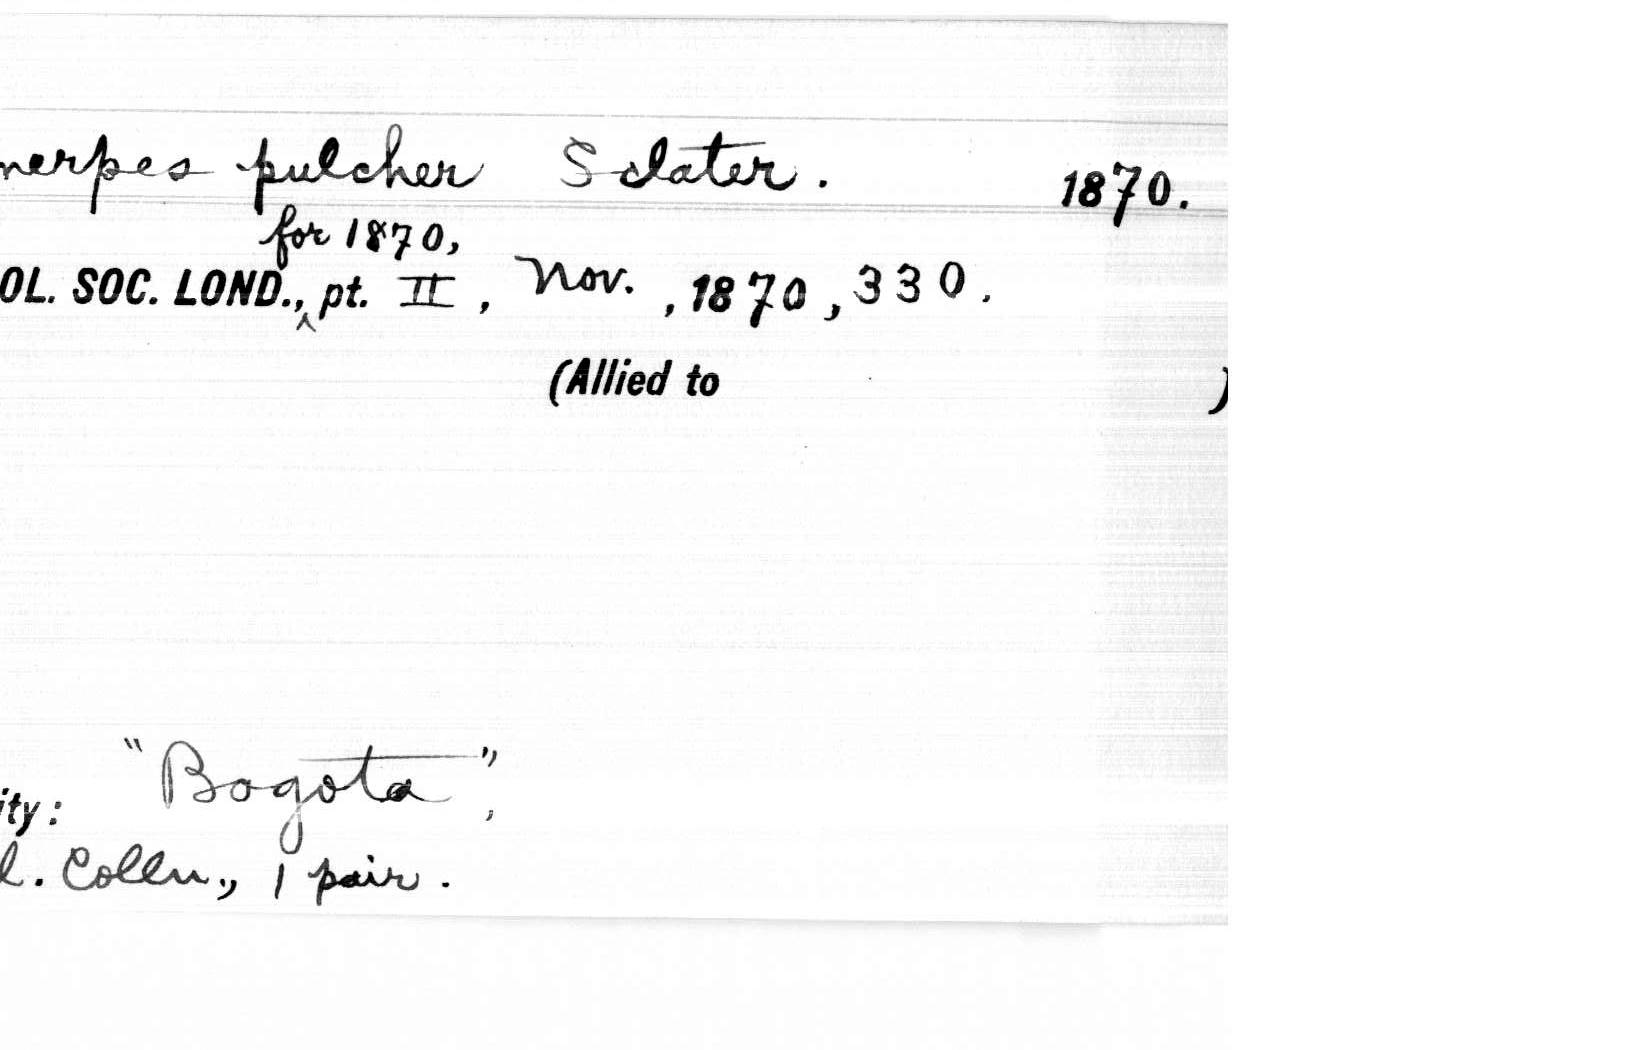 nerpes pulcher Sclater. 1870.
for 1870,
OL. SOC. LOND., ^ pt. II, Nov. , 1870, 330.
(Allied to )
"Bogota",
ity:
l. Colln., 1 pair.